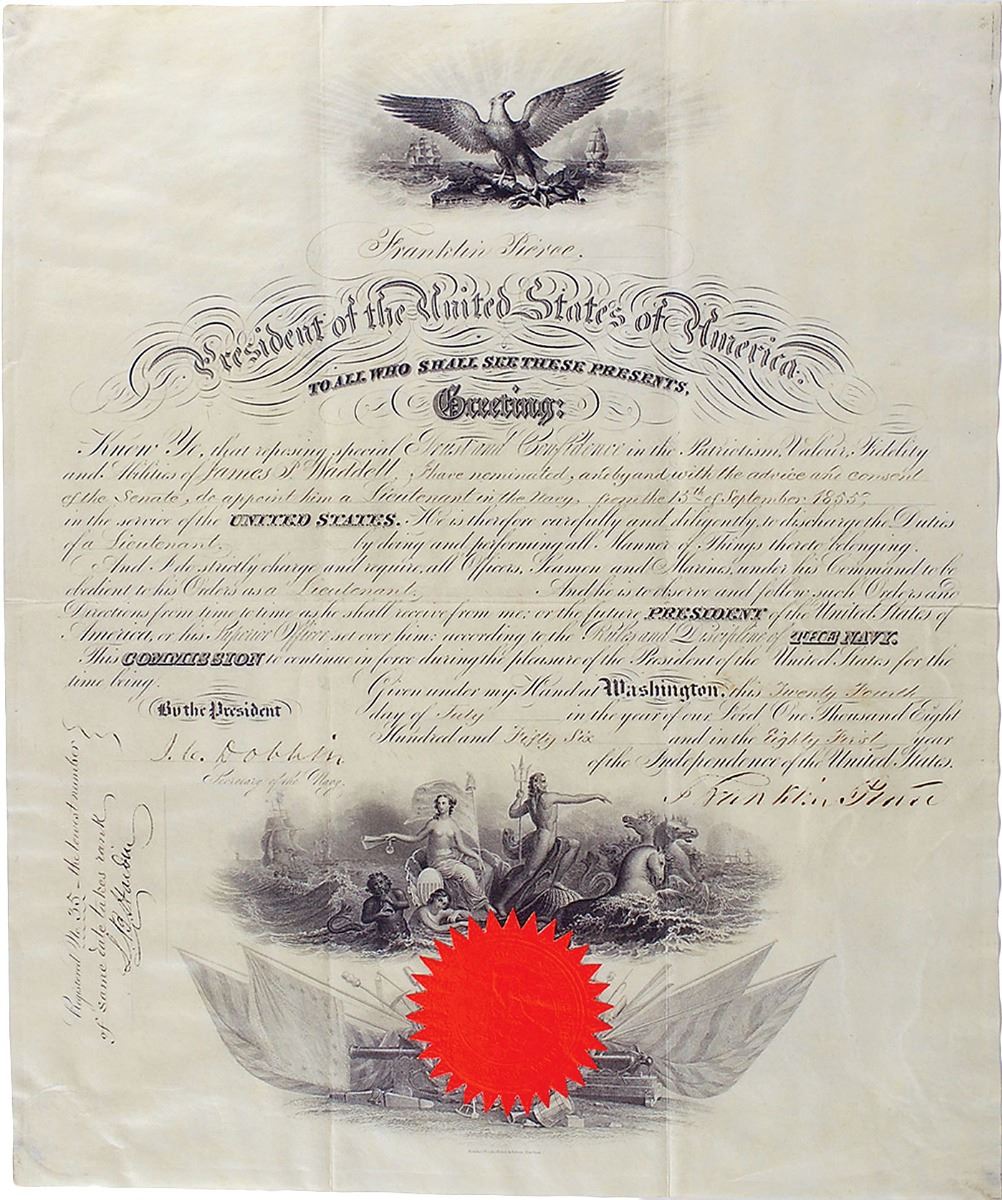 Franklin Pierce.
President of the United States of America.
TO ALL WHO SHALL SEE THESE PRESENTS,
Greeting:
Know Ye, that reposing special Trust and Confidence in the Patriotism, Valour, Fidelity
and Abilities of James I Waddell, I have nominated, and by and with the advice and consent
of the Senate, do appoint him a Lieutenant in the Navy, from the 15th of September 1855,
in the service of the UNITED STATES. He is therefore carefully and diligently, to discharge the Duties
of a Lieutenant, by doing and performing all Manner of Things thereto belonging.
And I do strictly charge and require, all Officers, Seamen and Marines, under his Command to be
obedient to his Orders as a Lieutenant. And he is to observe and follow such Orders and
Directions from time to time as he shall receive from me: or the future PRESIDENT of the United States of
America, or his Superior Officer set over him: according to the Rules and Discipline of THE NAVY.
This COMMISSION to continue in force during the pleasure of the President of the United States for the
time being.
Given under my Hand at Washington, this Twenty Fourth
By the President
day of July in the year of our Lord One Thousand Eight
Hundred and Fifty Six and in the Eighty First year
of the Independence of the United States.
J.C. Dobbin
Secretary of the Navy.
Franklin Pierce
Registered No. 35 - the lowest number
of same date takes rank